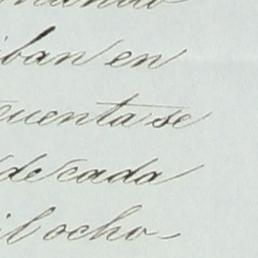 iban en
cuenta se
de cada
il ocho